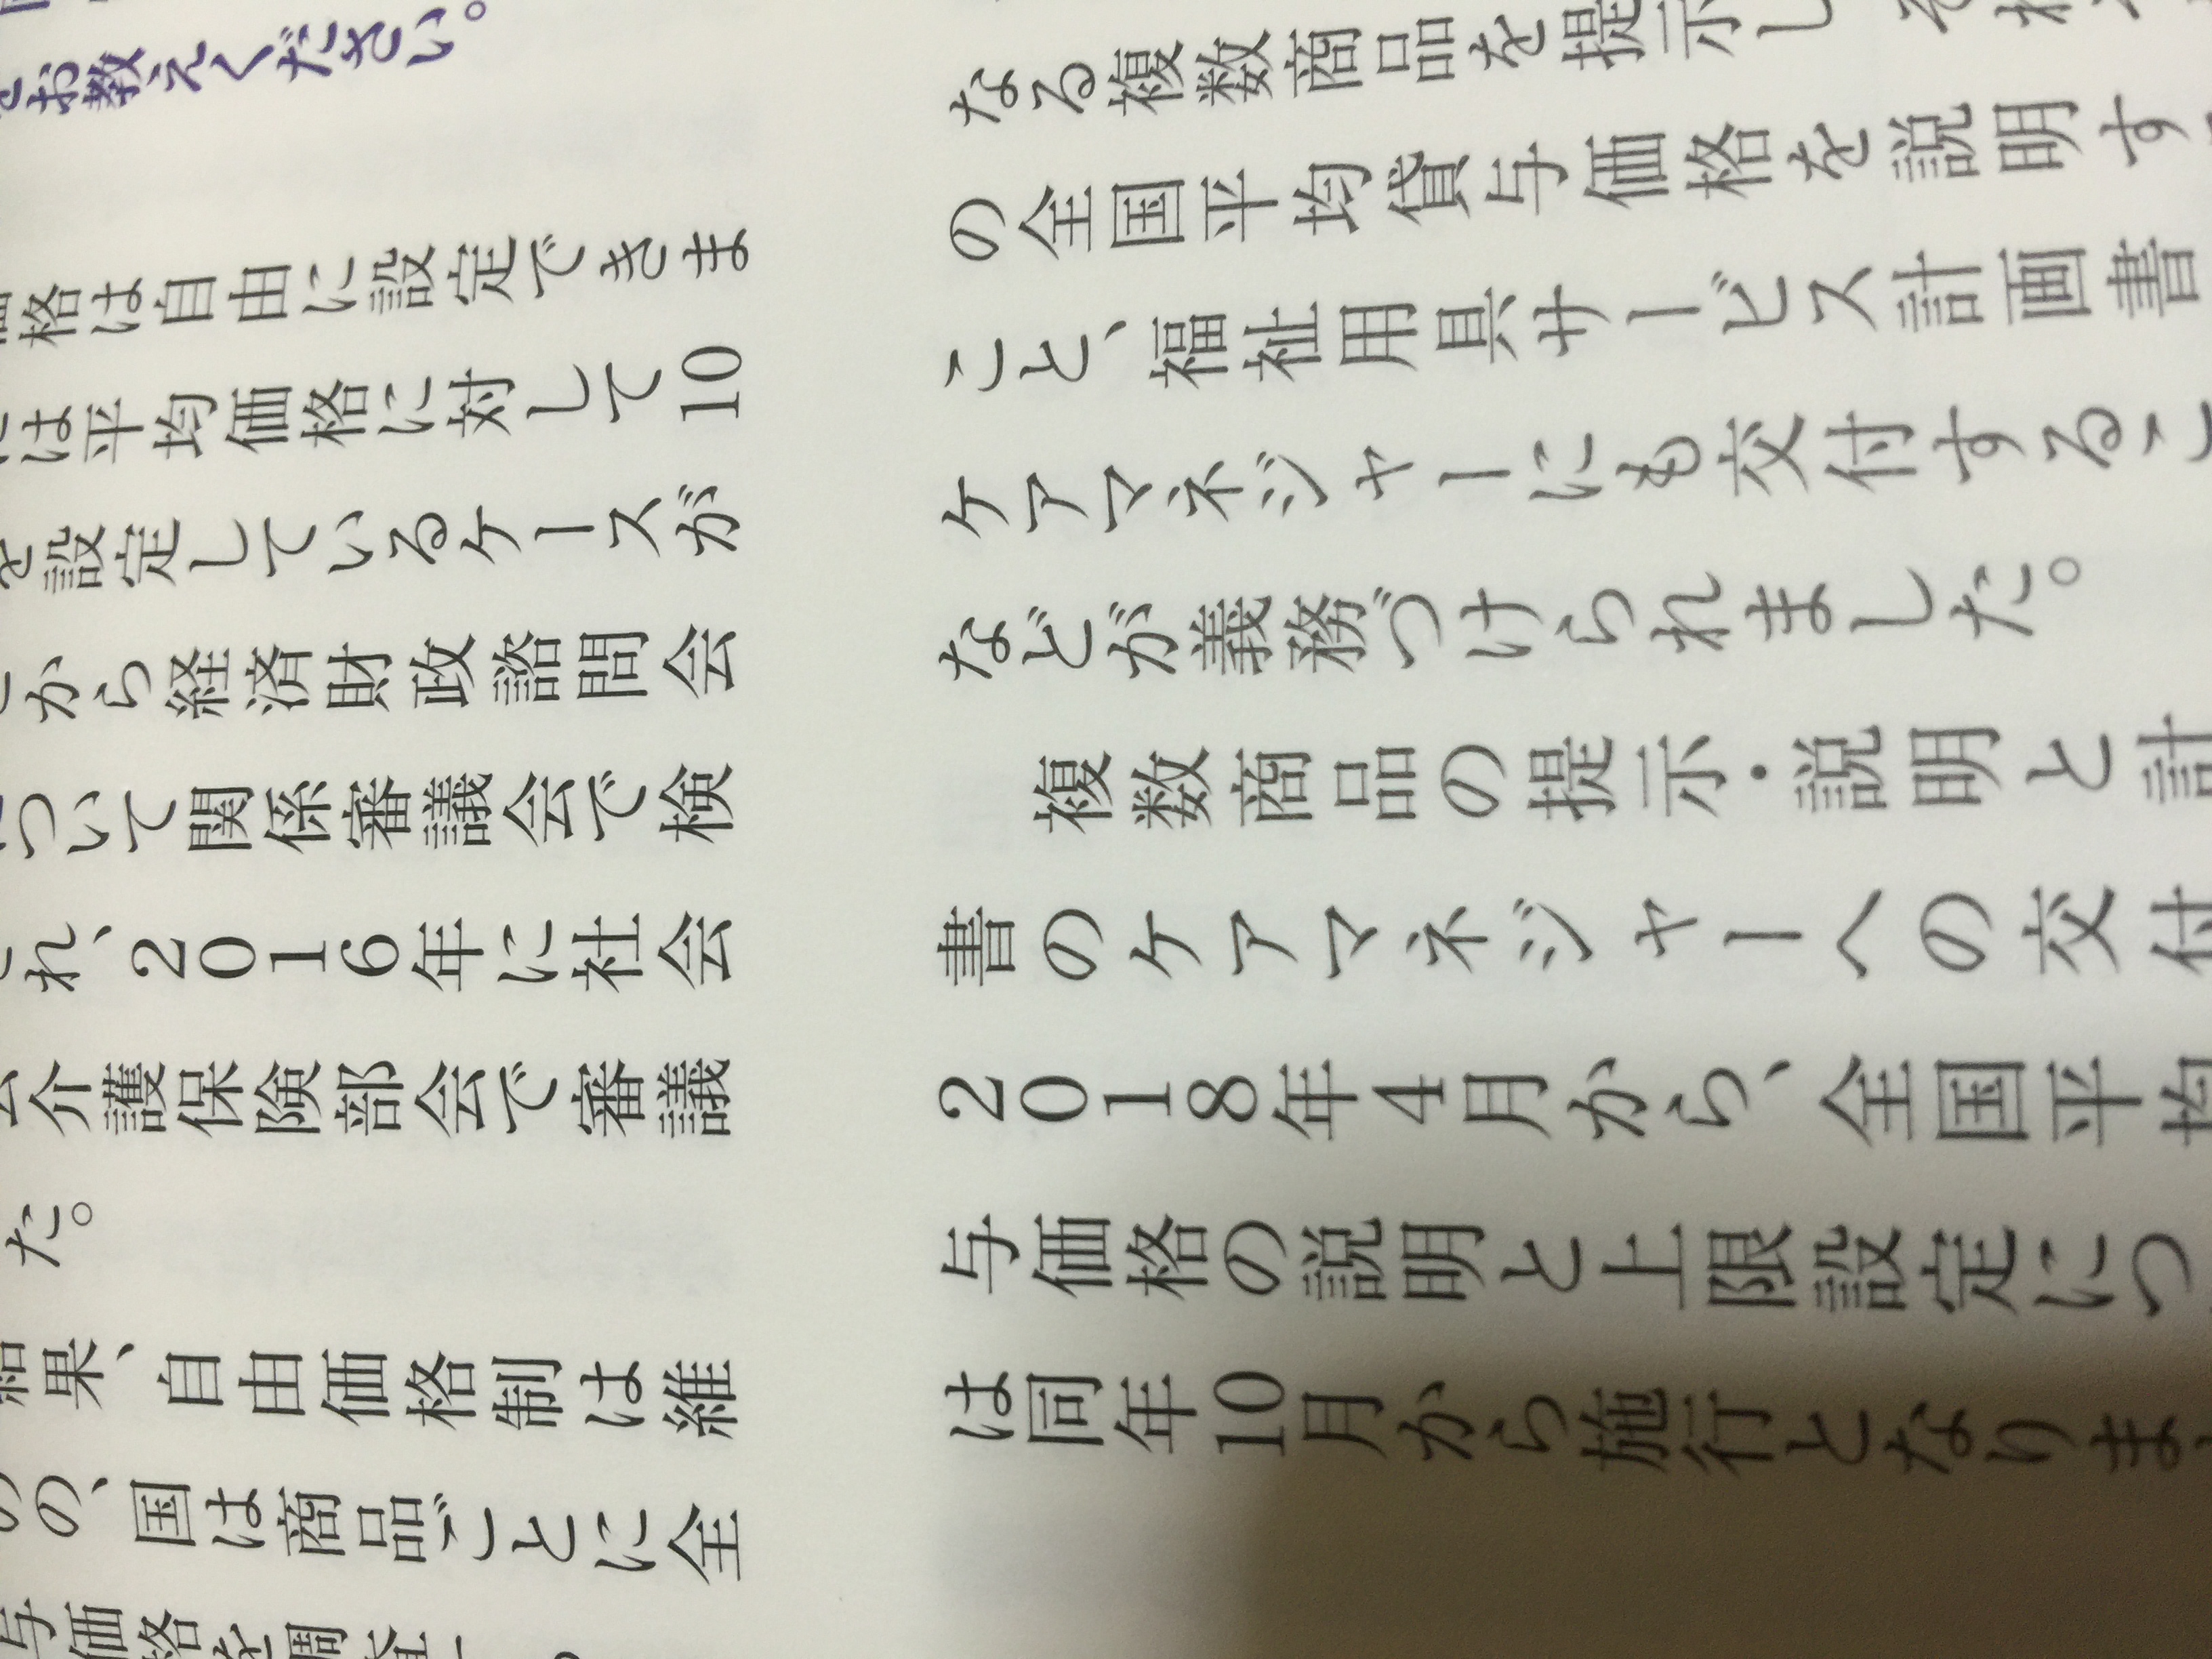 をお教えください。
価格は自由に設定できま
は平均価格に対して10
を設定しているケースが
から経済財政諮問会
ついて関係審議会で検
れ、2016年に社会
介護保険部会で審議
た。
結果、自由価格制は維
の、国は商品ごとに全
与価格を調査
なる複数商品を提示し
の全国平均貸与価格を説明す
こと、福祉用具サービス計画書
ケアマネジャーにも交付するこ
などが義務づけられました。
複数商品の提示・説明と計
書のケアマネジャーへの交付
2018年4月から、全国平均
与価格の説明と上限設定につ
は同年10月から施行となりま